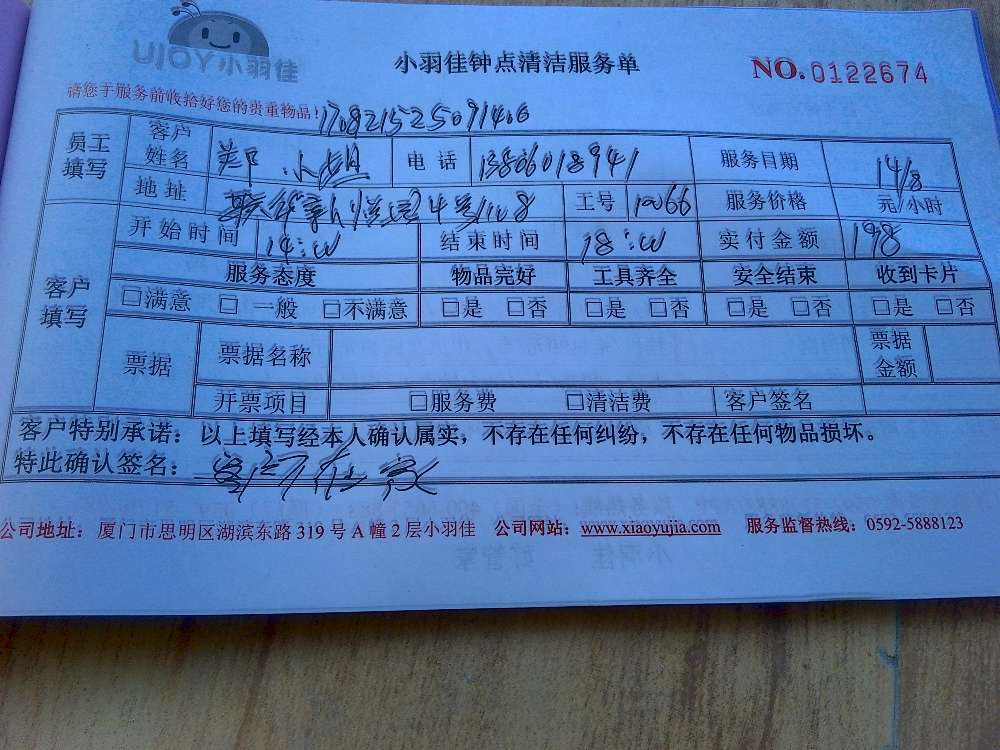 UJOY小羽佳
小羽佳钟点清洁服务单
NO.0122674
请您于服务前收拾好您的贵重物品!
170821525091406
员工填写 客户姓名 郑小姐 电话 13806018941 服务日期 14/8
地址 24号 1108 工号 10066 服务价格 元/小时
客户填写 开始时间 14:00 结束时间 18:00 实付金额 198
服务态度 物品完好 工具齐全 安全结束 收到卡片
□满意 □一般 □不满意 □是 □否 □是 □否 □是 □否 □是 □否
票据 票据名称 票据金额
开票项目 □服务费 □清洁费 客户签名
客户特别承诺：以上填写经本人确认属实，不存在任何纠纷，不存在任何物品损坏。
特此确认签名：客户不在家
公司地址：厦门市思明区湖滨东路 319 号 A 幢 2 层小羽佳 公司网站：www.xiaoyujia.com 服务监督热线：0592-5888123